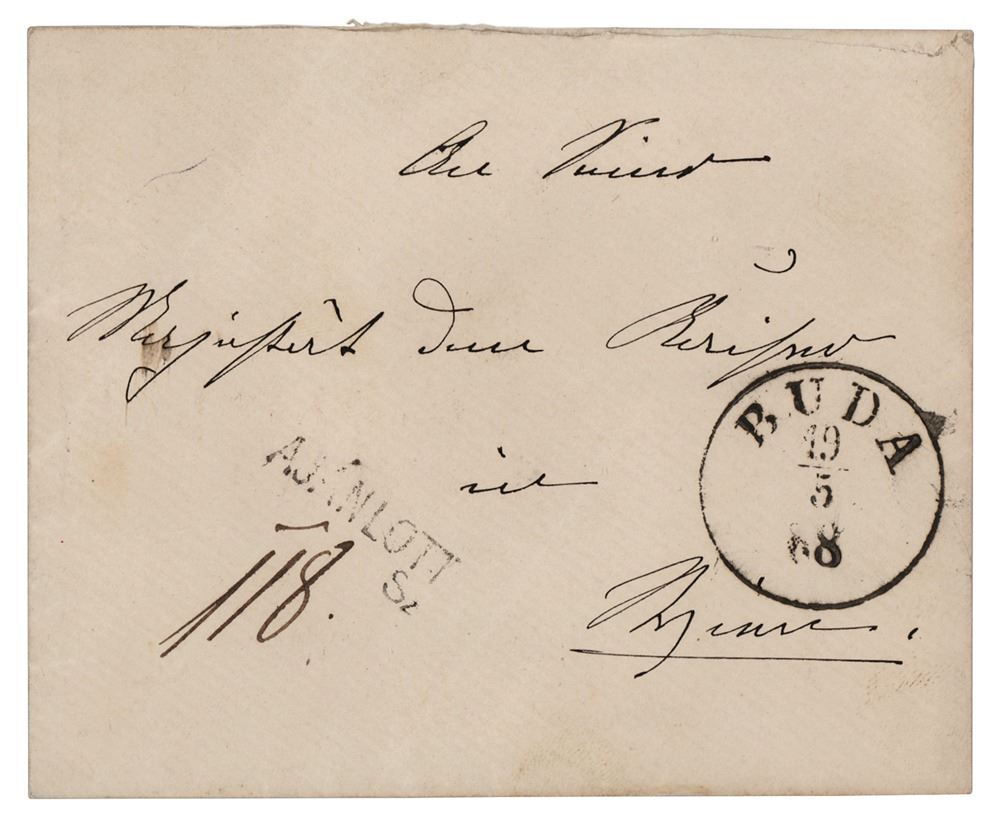 An Seine
Majestät den Kaiser
in
Wien.
AJÁNLOTT
Sz
118.
BUDA
19
5
68